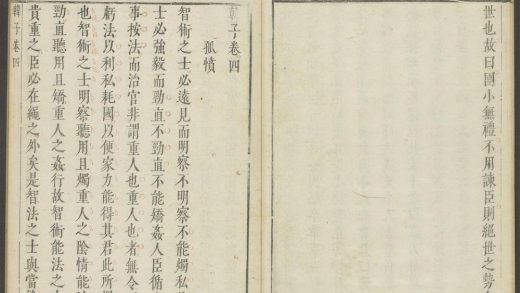 世也故曰國小無禮不用諫臣則絕世之勢
韓子卷四
孤憤
智術之士必遠見而明察不明察不能燭私
士必強毅而勁直不勁直不能矯姦人臣循
事按法而治官非謂重人也重人也者無令
虧法以利私耗國以便家力能得其君此所
也智術之士明察聽用且燭重人之陰情能
勁直聽用且矯重人之姦行故智術能法之
貴重之臣必在繩之外矣是智法之士與當
韓子卷四